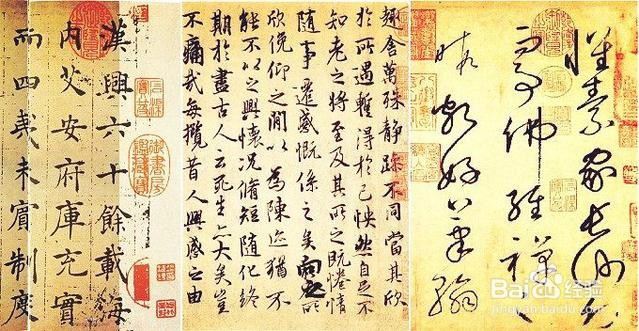 懷素家長沙幼而
事佛經禪之
暇頗好筆翰
趣舍萬殊靜躁不同當其欣
於所遇暫得於己怏然自足不
知老之將至及其所之既惓情
隨事遷感慨係之矣向之所
欣俛仰之閒以為陳迹猶不
能不以之興懷況脩短隨化終
期於盡古人云死生亦大矣豈
不痛哉每攬昔人興感之由
漢興六十餘載海
內艾安府庫充實
而四夷未賓制度
Baidu 经验